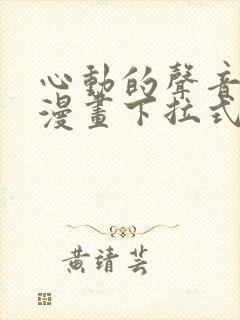 心動的聲音
漫畫下拉式
黃靖芸